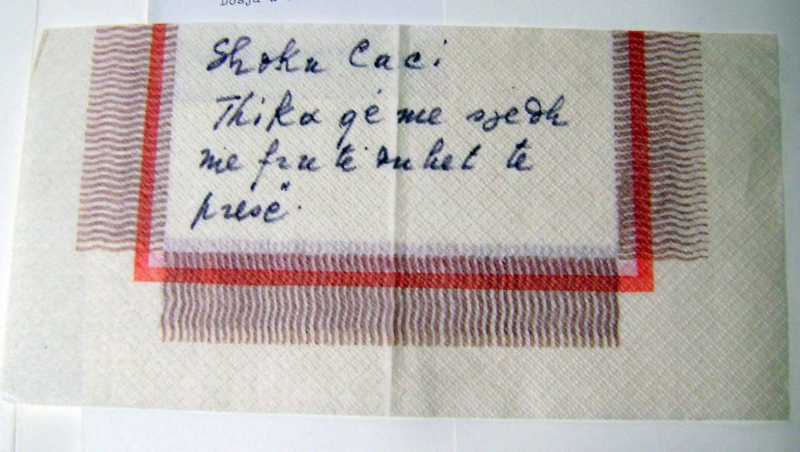 Dosja
Shoku Caci
Thika që me sjedh
me frutë duhet të
presë.